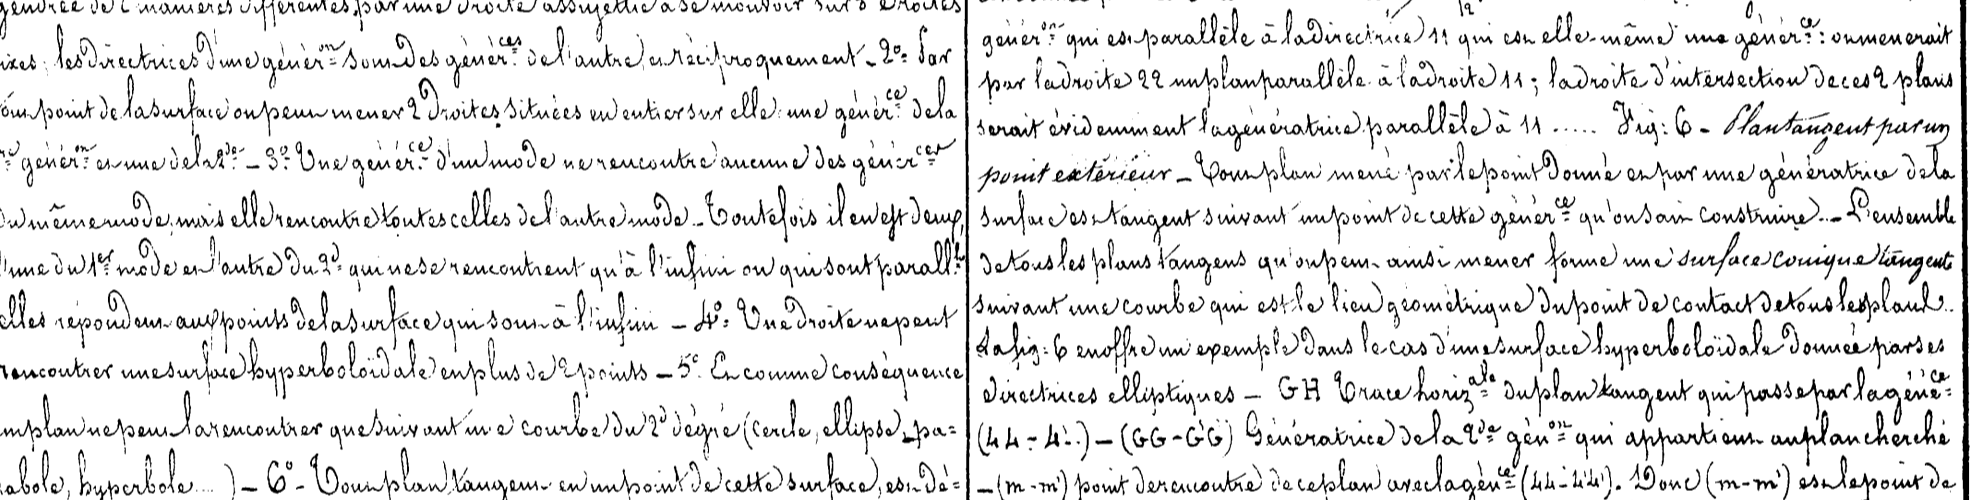 gendrée de 2 manières différentes, par une droite assujettie à se mouvoir sur 3 droites
ixes; les directrices d'une génér.on sont des génér.ces de l'autre, et réciproquement - 2°. Par
out point de la surface on peut mener 2 droites situées en entier sur elle: une génér.ce de la
re génér.on et une de la 2.de - 3°. Une génér.ce d'un mode ne rencontre aucune des génér.ces
du même mode, mais elle rencontre toutes celles de l'autre mode - Toutefois il en est deux,
l'une du 1.er mode et l'autre du 2.d qui ne se rencontrent qu'à l'infini ou qui sont parall.les
elles répondent aux points de la surface qui sont à l'infini - 4°. Une droite ne peut
rencontrer une surface hyperboloïdale en plus de 2 points - 5°. Et comme conséquence
un plan ne peut la rencontrer que suivant une courbe du 2.d dégré (cercle, ellipse, pa=
rabole, hyperbole....) - 6°. Tout plan tangent en un point de cette surface, est dé=
génér.on qui est parallèle à la directrice 11 qui est elle-même une génér.ce: on menerait
par la droite 22 un plan parallèle à la droite 11; la droite d'intersection de ces 2 plans
serait évidemment la génératrice parallèle à 11 ..... Fig: 6 - Plan tangent par un
point extérieur - Tout plan mené par le point donné et par une génératrice de la
surface est tangent suivant un point de cette génér.ce qu'on sait construire - L'ensemble
de tous les plans tangens qu'on peut ainsi mener forme une surface conique tangente
suivant une courbe qui est le lieu géométrique du point de contact de tous les plans..
La fig: 6 en offre un exemple dans le cas d'une surface hyperboloïdale donnée par ses
directrices elliptiques - GH Trace horiz.ale du plan tangent qui passe par la géné.ce
(44-4'..) - (GG-G'G') Génératrice de la 2.de gén.on qui appartient au plan cherché
- (m-m') point de rencontre de ce plan avec la gén.ce (44-4'4'). Donc (m-m') est le point de